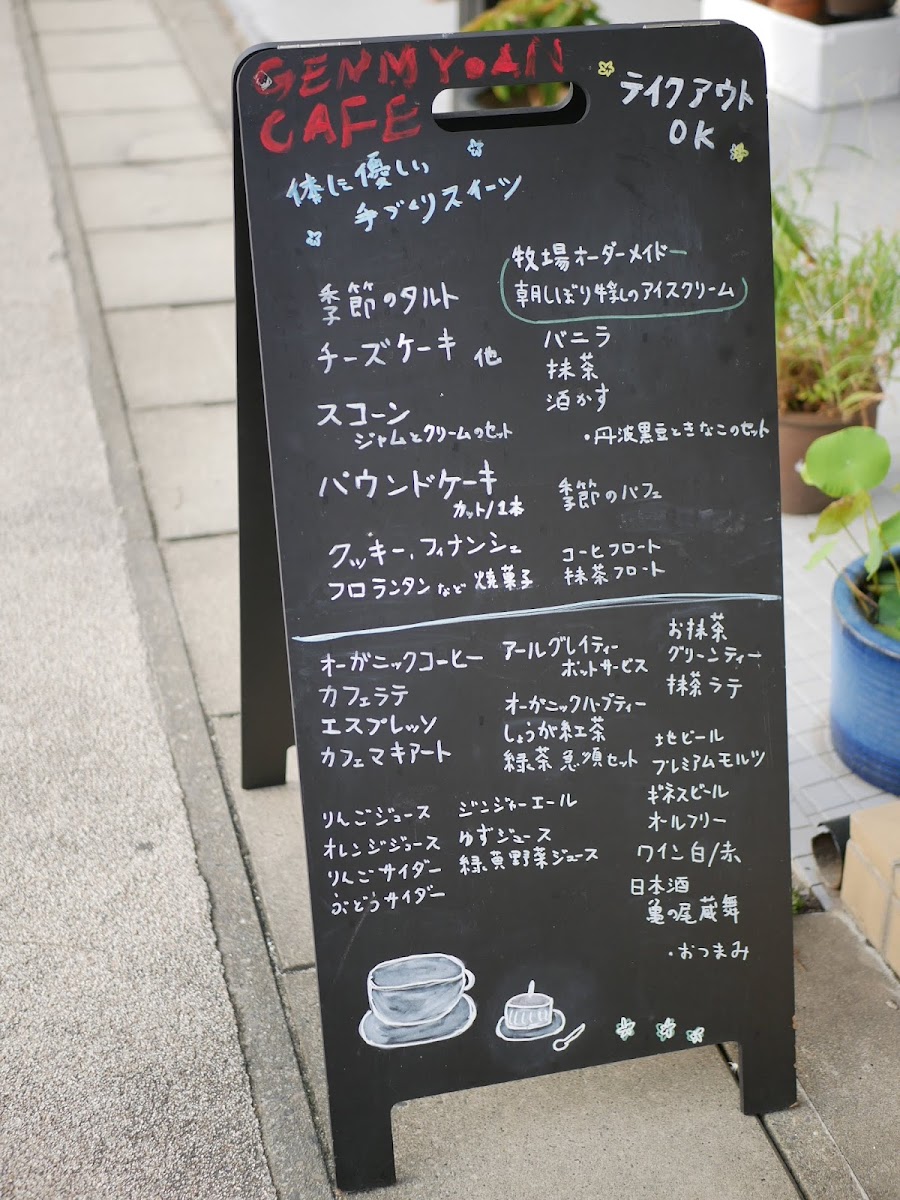 GENMYOAN
CAFE
テイクアウト
OK
体に優しい
手づくりスイーツ
季節のタルト
チーズケーキ 他
スコーン
ジャムとクリームのセット
パウンドケーキ
カット/1本
クッキー、フィナンシェ
フロランタンなど 焼菓子
牧場オーダーメイド
朝しぼり牛乳のアイスクリーム
バニラ
抹茶
酒かす
・丹波黒豆ときなこのセット
季節のパフェ
コーヒフロート
抹茶フロート
オーガニックコーヒー
カフェラテ
エスプレッソ
カフェマキアート
アールグレイティー
ポットサービス
オーガニックハーブティー
しょうが紅茶
緑茶 急須セット
お抹茶
グリーンティー
抹茶ラテ
りんごジュース
オレンジジュース
りんごサイダー
ぶどうサイダー
ジンジャーエール
ゆずジュース
緑黄野菜ジュース
地ビール
プレミアムモルツ
ギネスビール
オールフリー
ワイン 白/赤
日本酒
亀の尾蔵舞
・おつまみ